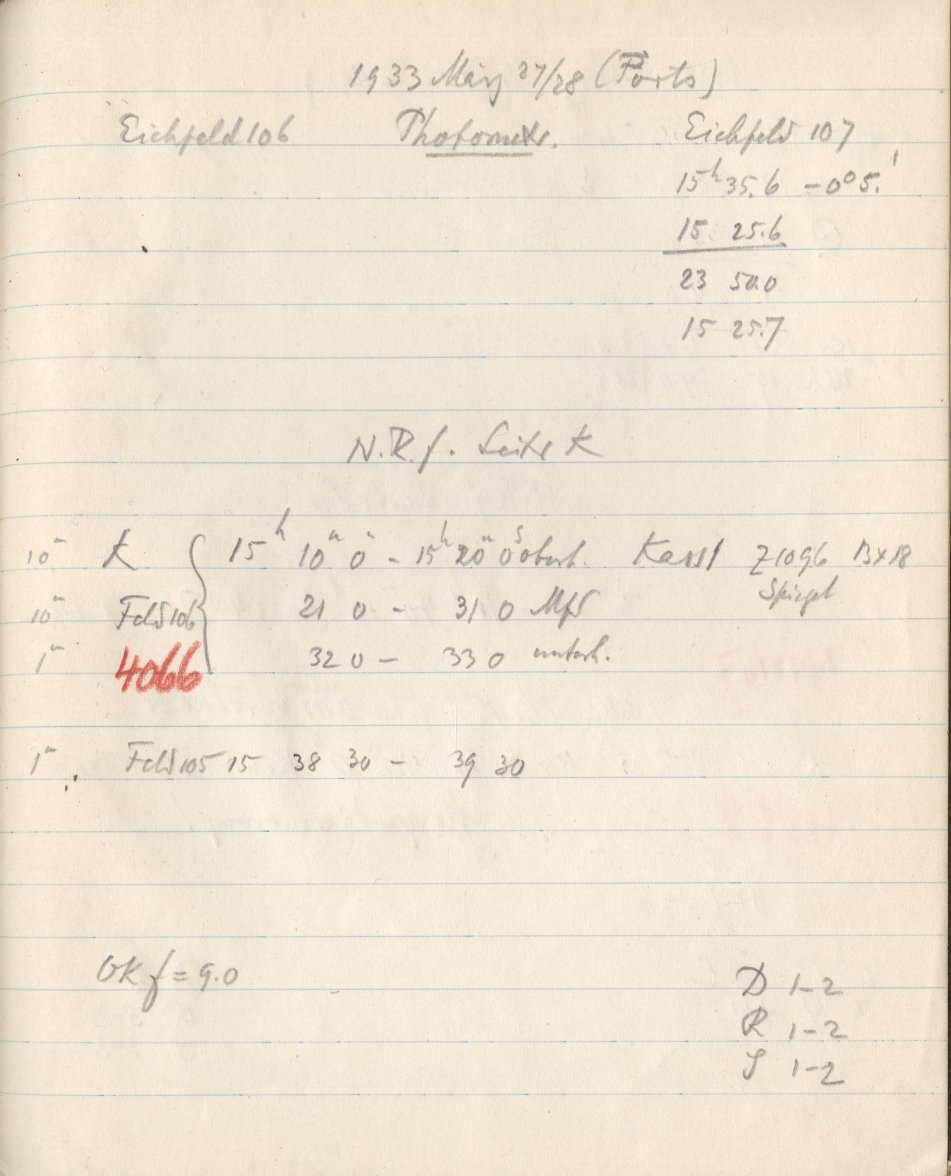 1933 März 27/28 (Forts)
Eichfeld 106 Photometr. Eichfeld 107
15ʰ 35.6 -0° 5.'
15 25.6
23 50.0
15 25.7
N.R.f. Seite K
10ᵐ K 15ʰ 10ᵐ 0ˢ - 15ʰ 20ᵐ 0ˢ oberh. Kass1 Z1096 13x18
Spiegel
10ᵐ Feld 106 21 0 - 31 0
1ᵐ 4066 32 0 - 33 0 unterh.
1ᵐ Feld 105 15 38 30 - 39 30
OK f = 9.0
D 1-2
R 1-2
S 1-2